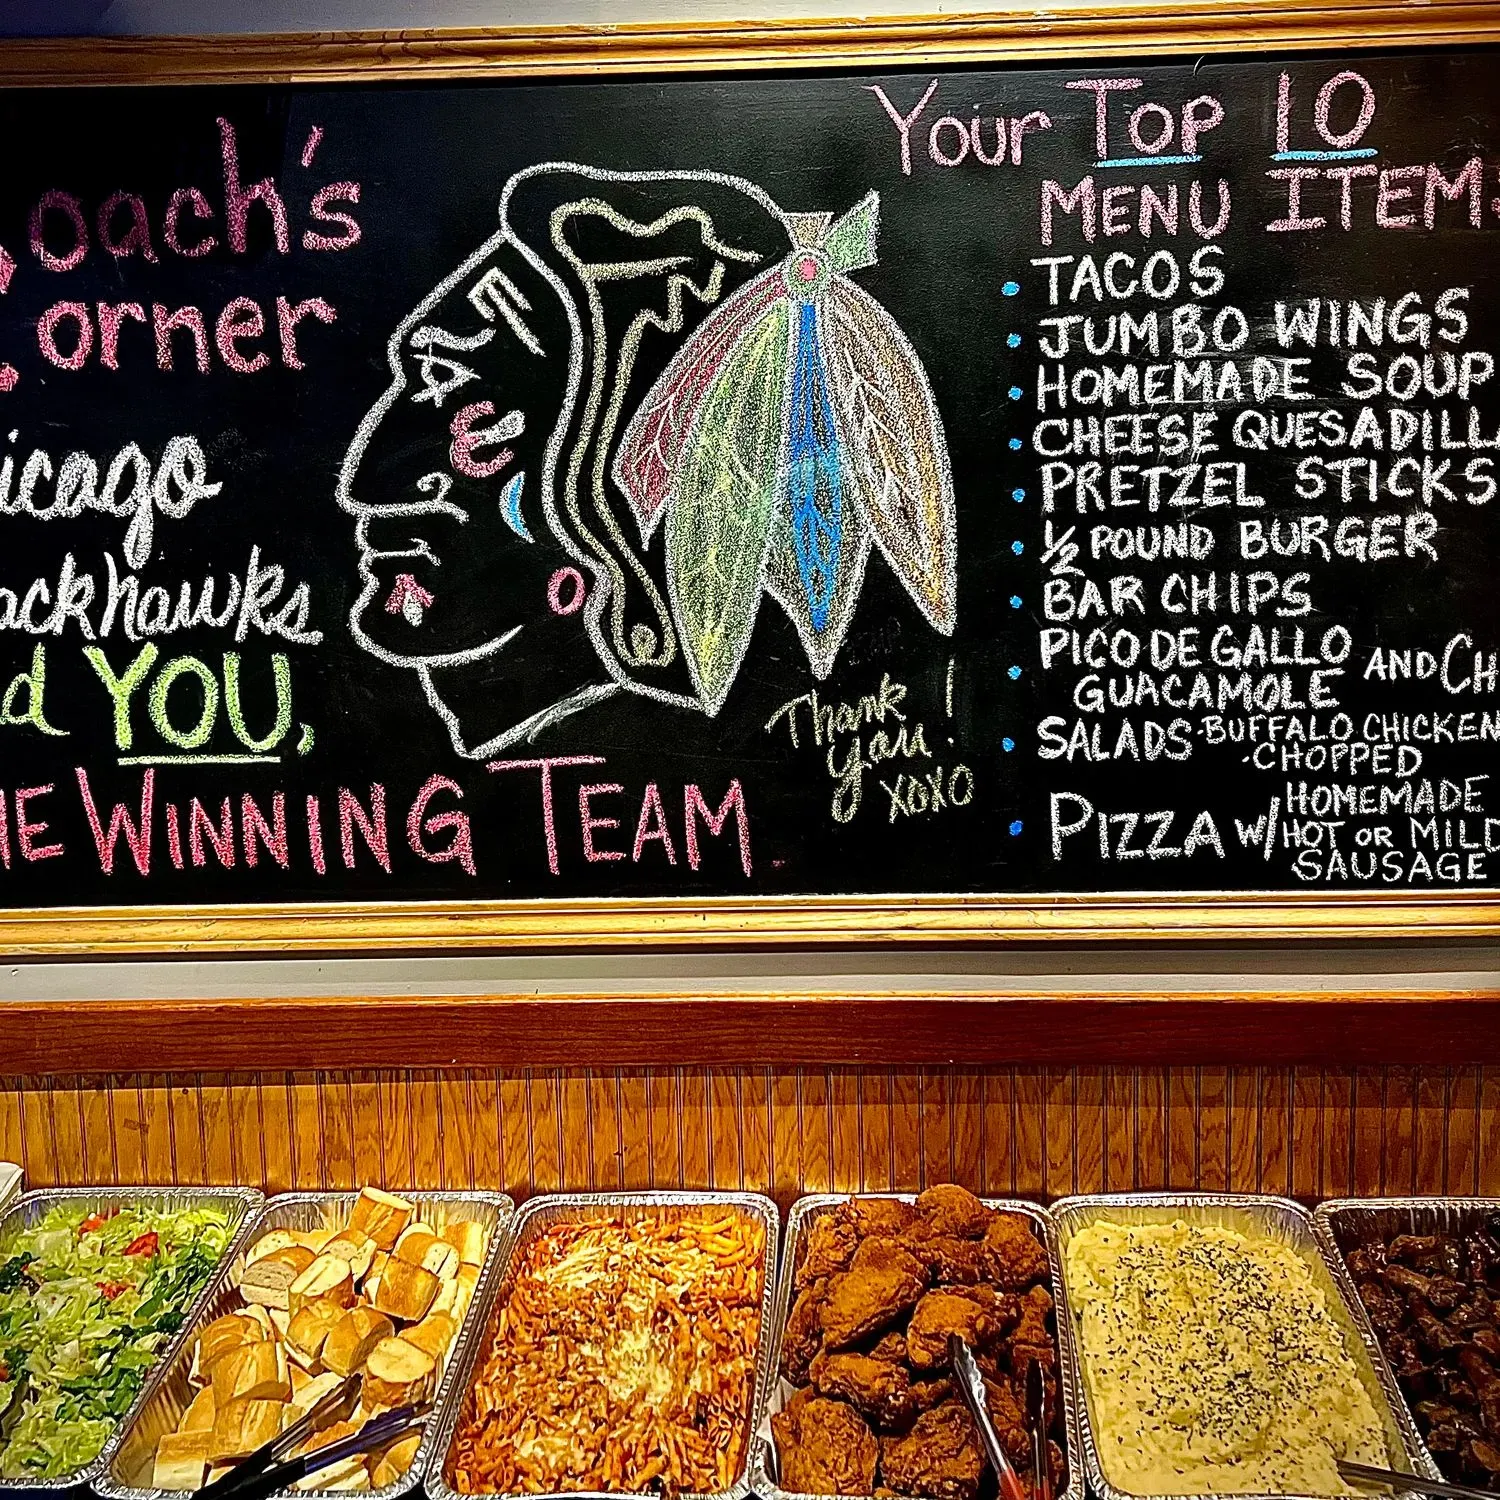 oach's
orner
icago
ackhawks
d YOU,
HE WINNING TEAM
Thank
you!
XOXO
Your Top 10
MENU ITEM
• TACOS
• JUMBO WINGS
• HOMEMADE SOUP
• CHEESE QUESADILLA
• PRETZEL STICKS
• ½ POUND BURGER
• BAR CHIPS
• PICO DE GALLO AND CH
GUACAMOLE
• SALADS -BUFFALO CHICKEN
-CHOPPED
• PIZZA W/ HOMEMADE
HOT OR MILD
SAUSAGE